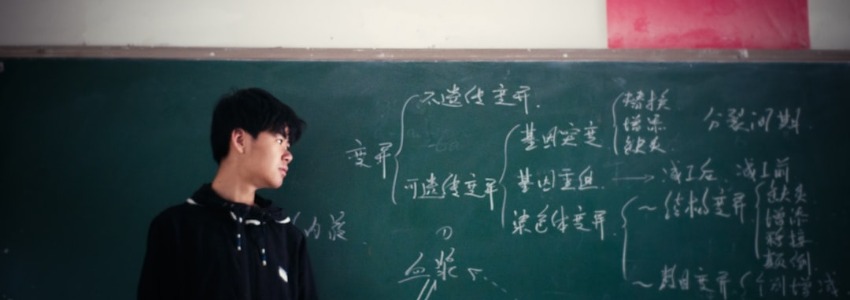 变异
不遗传变异.
可遗传变异
基因突变
替换
增添
缺失
分裂间期.
基因重组.
减I后. 减I前
染色体变异.
~结构变异
缺失
增添
易接
颠倒
~数目变异
个别增减
内浆
①
血浆